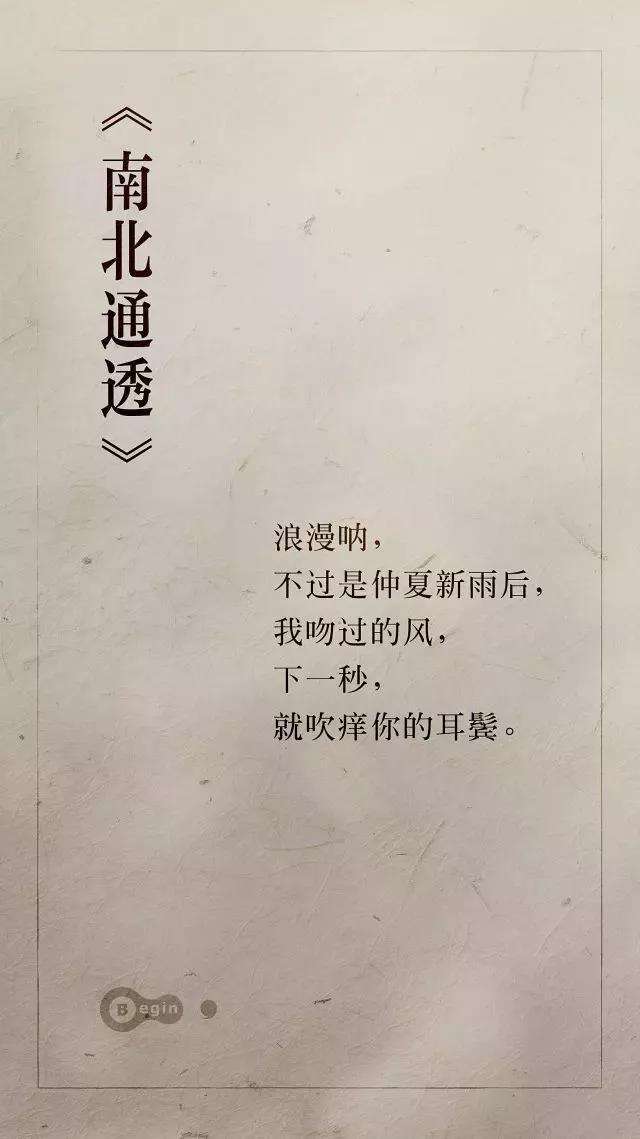 《南北通透》
浪漫呐，
不过是仲夏新雨后，
我吻过的风，
下一秒，
就吹痒你的耳鬓。
Begin